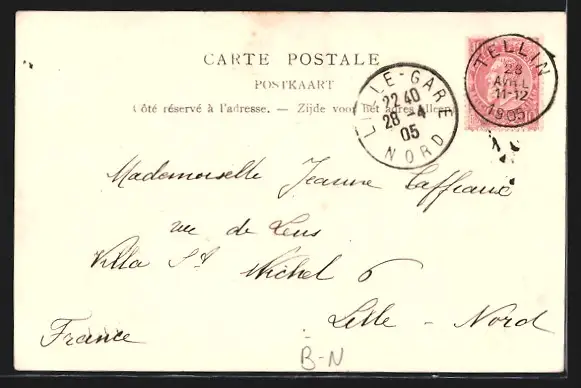 CARTE POSTALE
POSTKAART
Côté réservé à l'adresse. — Zijde voor het adres alleen
TELLIN
28
AVRIL
11-12
1905
LILLE-GARE
22 40
28 - 4
05
NORD
Mademoiselle Jeanne Caffiaux
rue de Lens
Villa St Michel 6
Lille - Nord
France
B-N